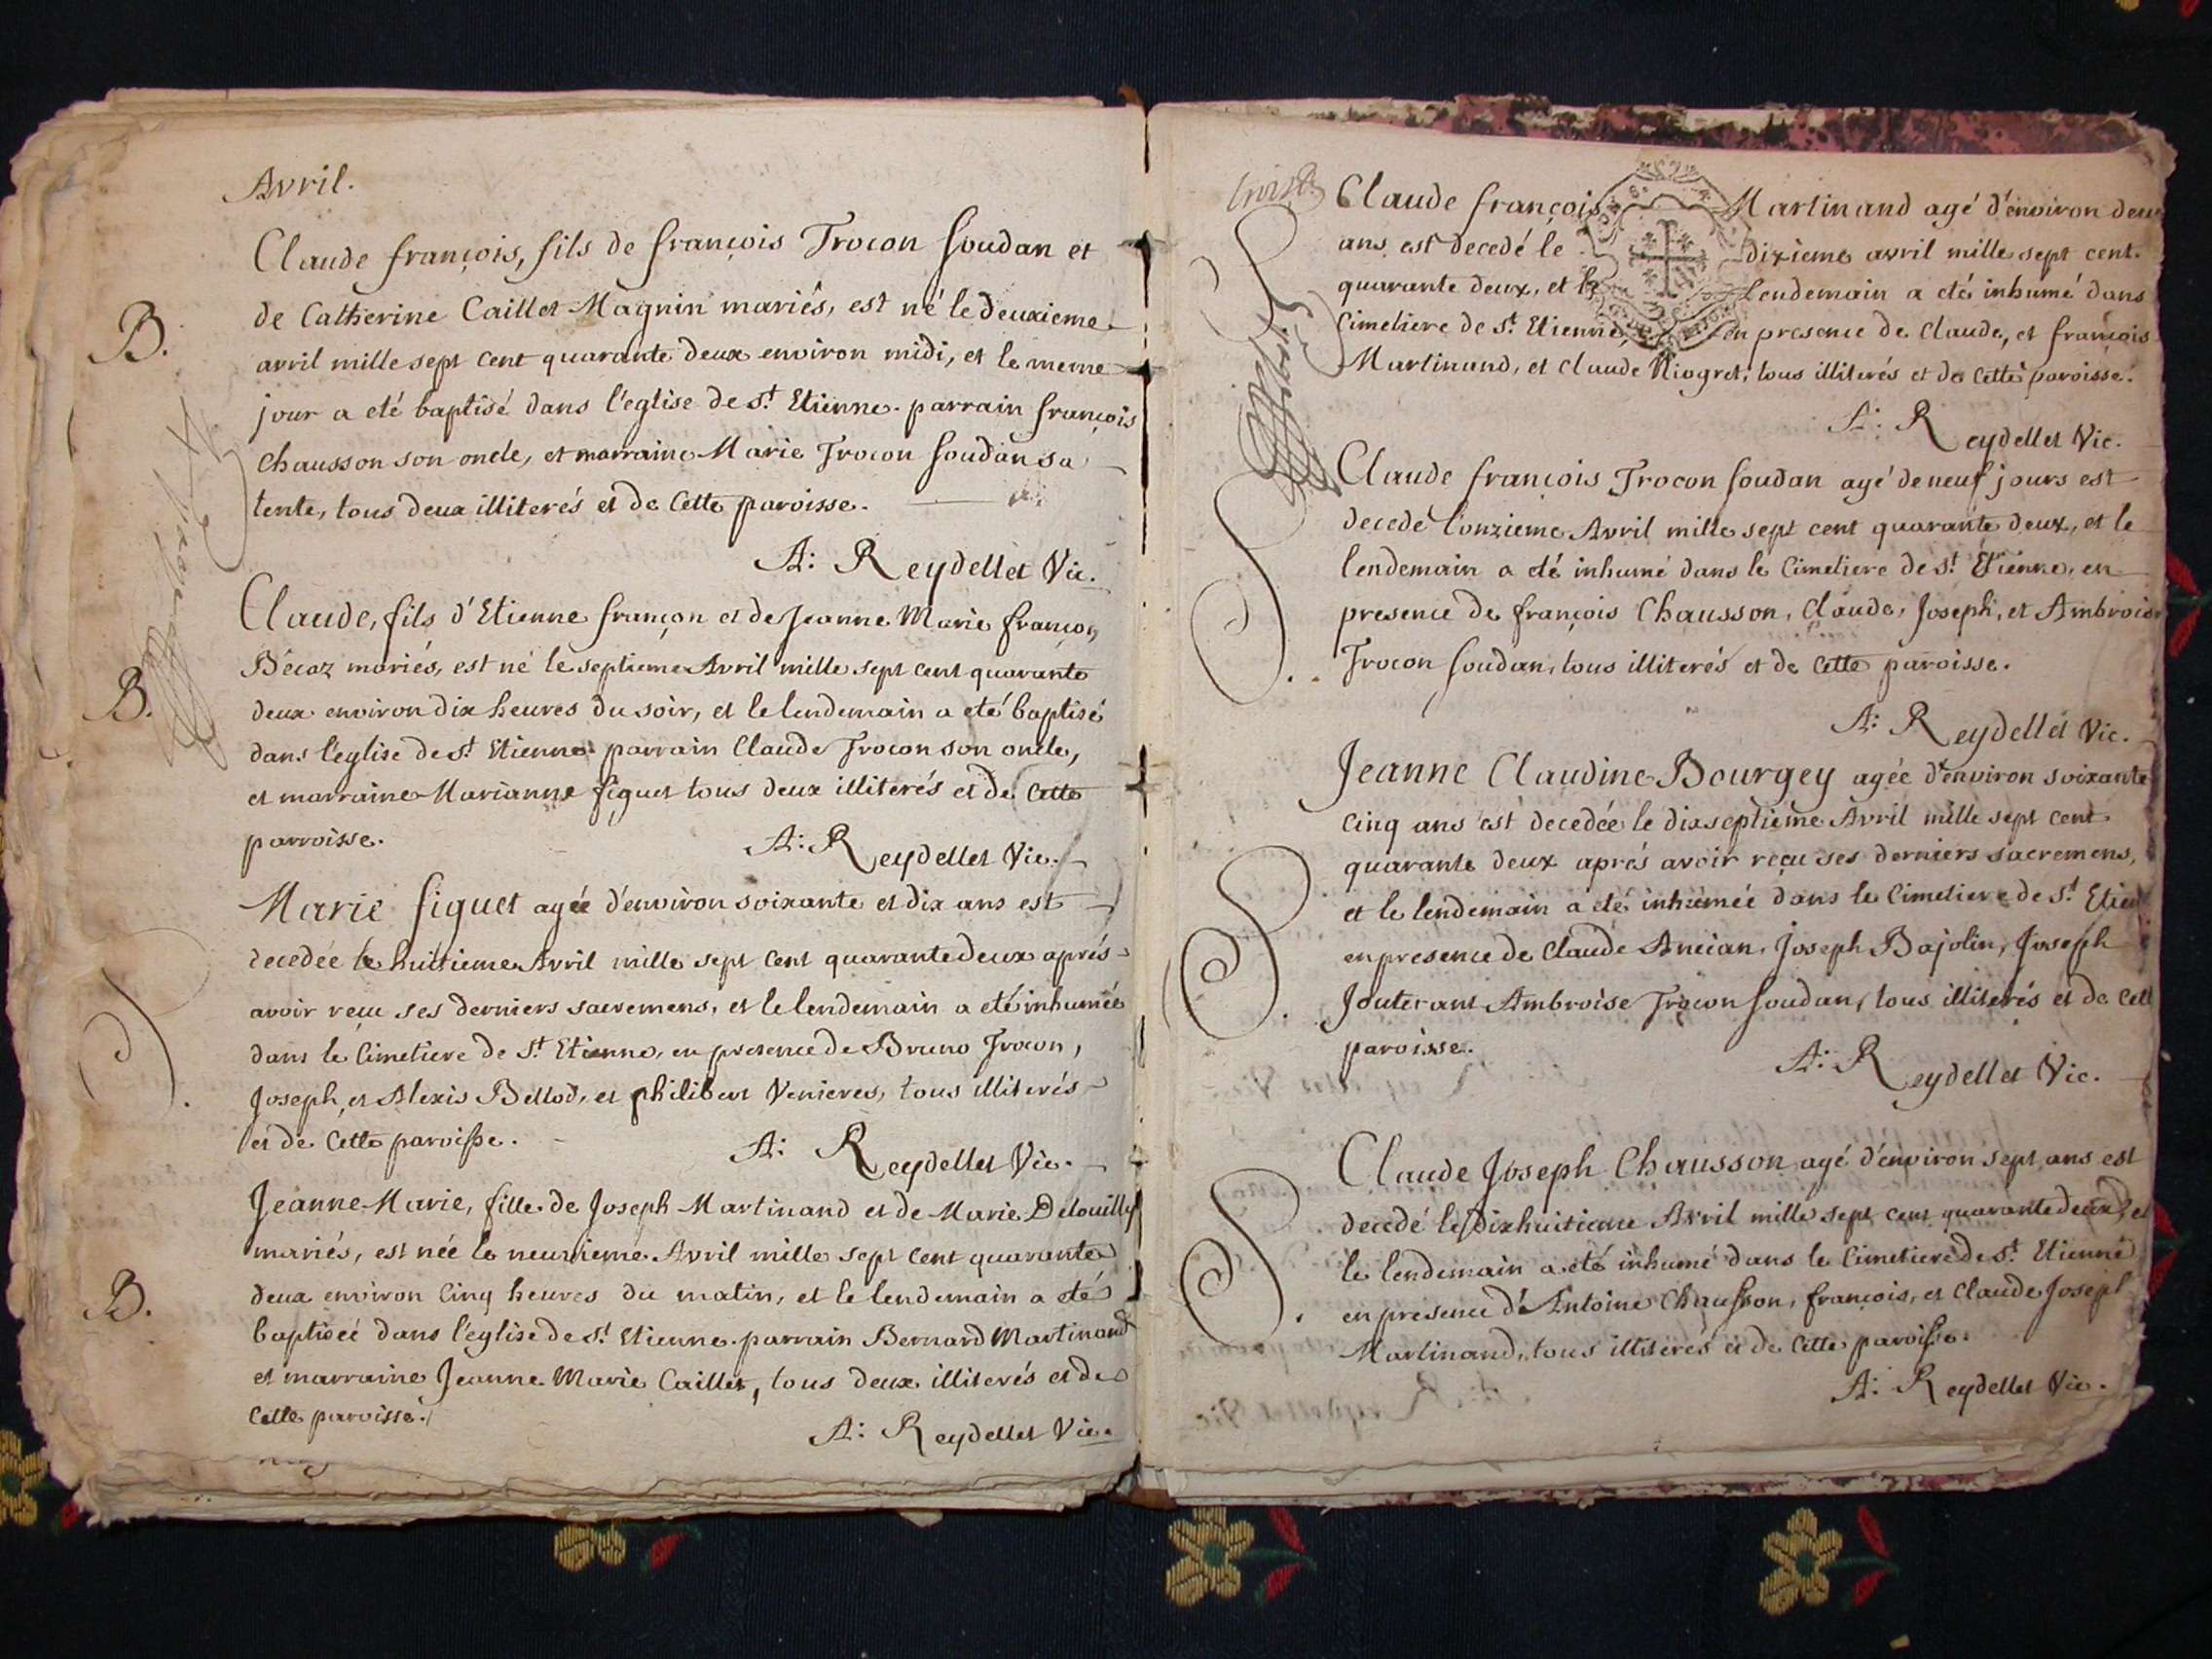 Avril.
Claude françois, fils de françois Trocon soudan et
B. de Catherine Caillet Magnin mariés, est né le deuxieme
avril mille sept cent quarante deux environ midi, et le meme
jour a eté baptisé dans l'eglise de St. Etienne. parrain françois
chausson son oncle, et marraine Marie Trocon soudan sa
tente, tous deux illiterés et de cette paroisse.
A: Reydellet Vic.
Claude, fils d'Etienne françon et de Jeanne Marie françon
B. Bécaz mariés, est né le septieme Avril mille sept cent quarante
deux environ dix heures du soir, et le lendemain a eté baptisé
dans l'eglise de St Etienne. parrain Claude Trocon son oncle,
et marraine Marianne figuet tous deux illiterés et de cette
parroisse.
A: Reydellet Vic.
Marie figuet agée d'environ soixante et dix ans est
decedée le huitieme Avril mille sept cent quarante deux aprés
avoir reçu ses derniers sacremens, et le lendemain a eté inhumée
dans le Cimetiere de St. Etienne, en presence de Bruno Trocon,
Joseph, et Alexis Bellod, et philibert Venieres, tous illiterés
et de cette paroisse.
A: Reydellet Vic.
Jeanne Marie, fille de Joseph Martinand et de Marie Delouilly
mariés, est née le neuvieme Avril mille sept cent quarante
B. deux environ cinq heures du matin, et le lendemain a eté
baptisée dans l'eglise de St. Etienne. parrain Bernard Martinand
et marraine Jeanne Marie Caillet, tous deux illiterés et de
cette paroisse.
A: Reydellet Vic.
Claude françois Martinand agé d'environ deux
ans est decedé le dixieme avril mille sept cent
quarante deux, et le lendemain a eté inhumé dans
Cimetiere de St. Etienne, en presence de Claude, et françois
Martinand, et Claude Niogret, tous illiterés et de cette paroisse.
A: Reydellet Vic.
Claude françois Trocon soudan agé de neuf jours est
decedé l'onzieme Avril mille sept cent quarante deux, et le
lendemain a eté inhumé dans le Cimetiere de St. Etienne, en
presence de françois Chausson, Claude, Joseph, et Ambroise
Trocon soudan, tous illiterés et de cette paroisse.
A: Reydellet Vic.
Jeanne Claudine Bourgey agée d'environ soixante
cinq ans est decedée le dixseptieme Avril mille sept cent
quarante deux aprés avoir reçu ses derniers sacremens,
et le lendemain a eté inhumée dans le Cimetiere de St. Etien
en presence de Claude Ancian, Joseph Bajolin, Joseph
Jouterant Ambroise Trocon soudan, tous illiterés et de cett
paroisse.
A: Reydellet Vic.
Claude Joseph Chausson agé d'environ sept ans est
decedé le dixhuitieme Avril mille sept cent quarante deux, et
le lendemain a eté inhumé dans le Cimetiere de St. Etienne
en presence d'Antoine Chausson, françois, et Claude Joseph
Martinand, tous illiterés et de cette paroisse.
A: Reydellet Vic.